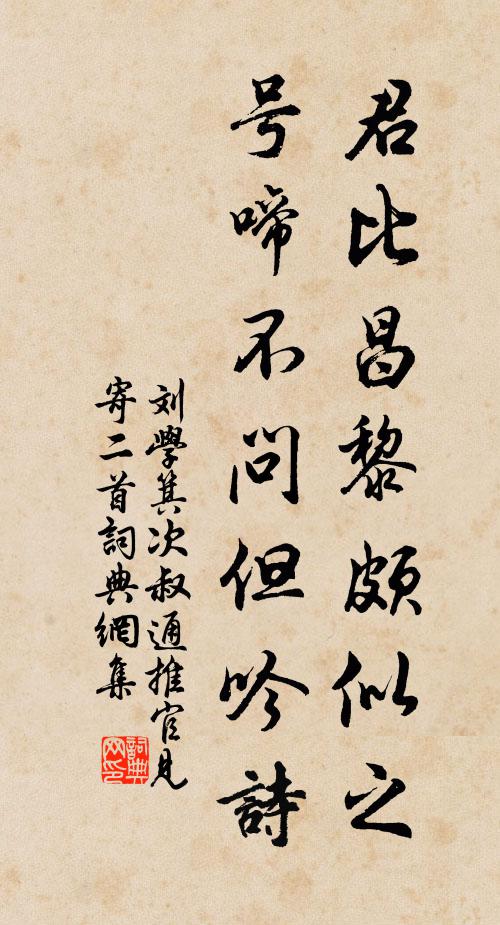 君比昌黎颇似之
号啼不问但吟詩
刘學箕次叔通推官見
寄二首詞典網集
詞典
网印